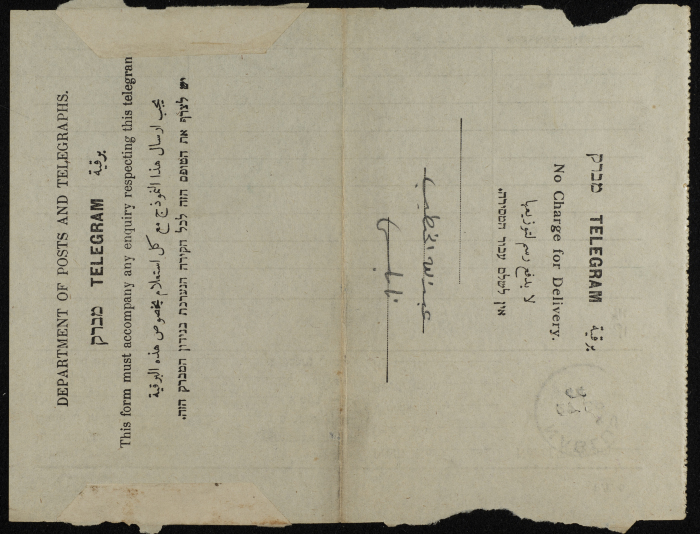 DEPARTMENT OF POSTS AND TELEGRAPHS.
מברק TELEGRAM برقية
This form must accompany any enquiry respecting this telegram
يجب ارسال هذا النموذج مع كل استعلام بخصوص هذه البرقية
יש לצרף את הטופס הזה לכל חקירה הנערכת בנידון המברק הזה.
מברק TELEGRAM برقية
No Charge for Delivery.
لا يدفع رسم لتوزيعها
אין לשלם עבור המסירה.
نابلس